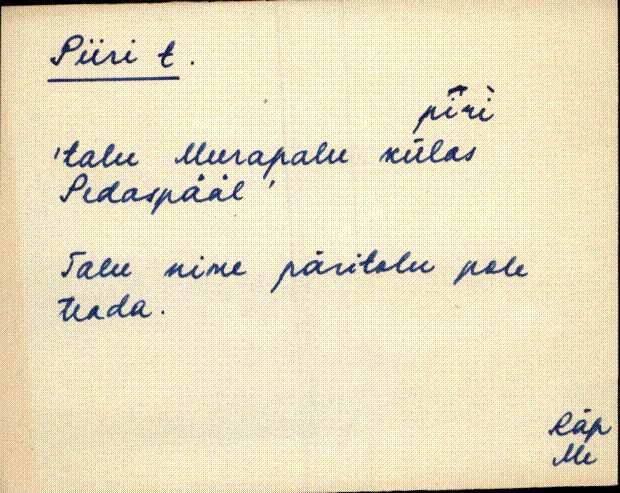 Piiri t.
pīri
'talu Meerapalu külas
Pedaspääl'
Talu nime päritolu pole
teada.
Räp
Me